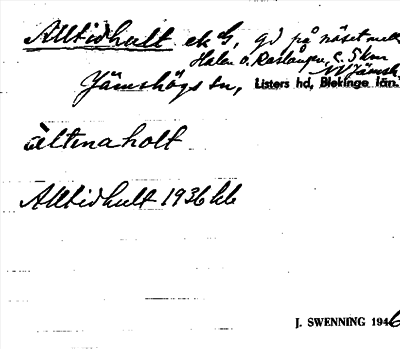 Alltidhult ek dG, gd på näset mell.
Halen o. Raslången, c. 5 km
NV Jämsh.
Jämshögs sn, Listers hd, Blekinge län.
àltınaholt
Alltidhult 1936 kb
J. SWENNING 1946